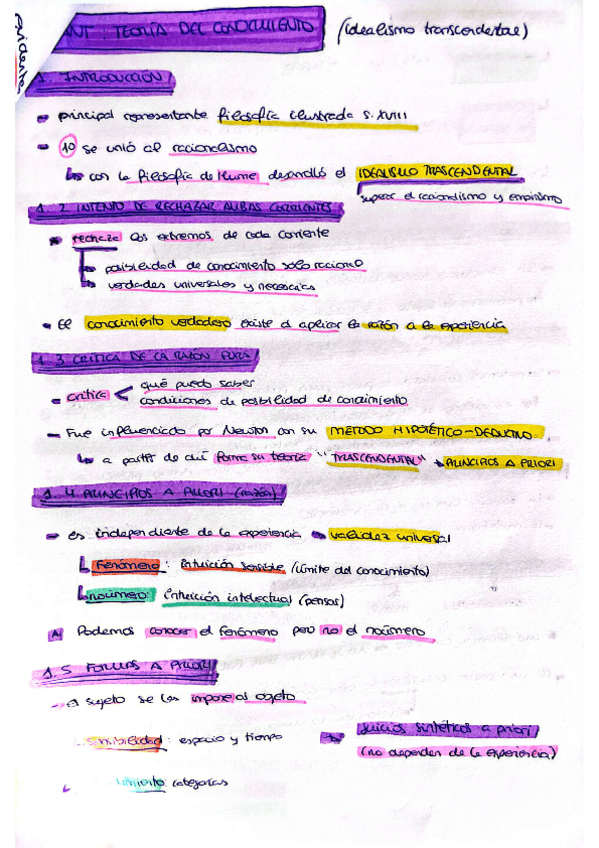 evidente
NT : TEORÍA DEL CONOCIMIENTO (idealismo transcendental)
1. INTRODUCCIÓN
principal representante filosofía ilustrada s.XVIII
1º se unió al racionalismo
con la filosofía de Hume desarrolló el IDEALISMO TRASCENDENTAL
superar el racionalismo y empirismo
1. 2 INTENTO DE RECHAZAR AMBAS CORRIENTES
rechaza los extremos de cada corriente
posibilidad de conocimiento solo racional
verdades universales y necesarias
El conocimiento verdadero existe al aplicar la razón a la experiencia
1. 3 CRITICA DE LA RAZÓN PURA
critica < qué puedo saber
condiciones de posibilidad de conocimiento
Fue influenciado por Newton con su MÉTODO HIPOTÉTICO-DEDUCTIVO
a partir de aquí forma su teoría "TRASCENDENTAL" → PRINCIPIOS A PRIORI
1. 4 PRINCIPIOS A PRIORI (razón)
es independiente de la experiencia → validez universal
Fenómeno : intuición sensible (límite del conocimiento)
noúmeno: intuición intelectual (pensar)
A Podemos conocer el fenómeno pero no el noúmeno
1. 5 FORMAS A PRIORI
el sujeto se las impone al objeto
sensibilidad : espacio y tiempo
juicios sintéticos a priori
(no dependen de la experiencia)
imiento categorías